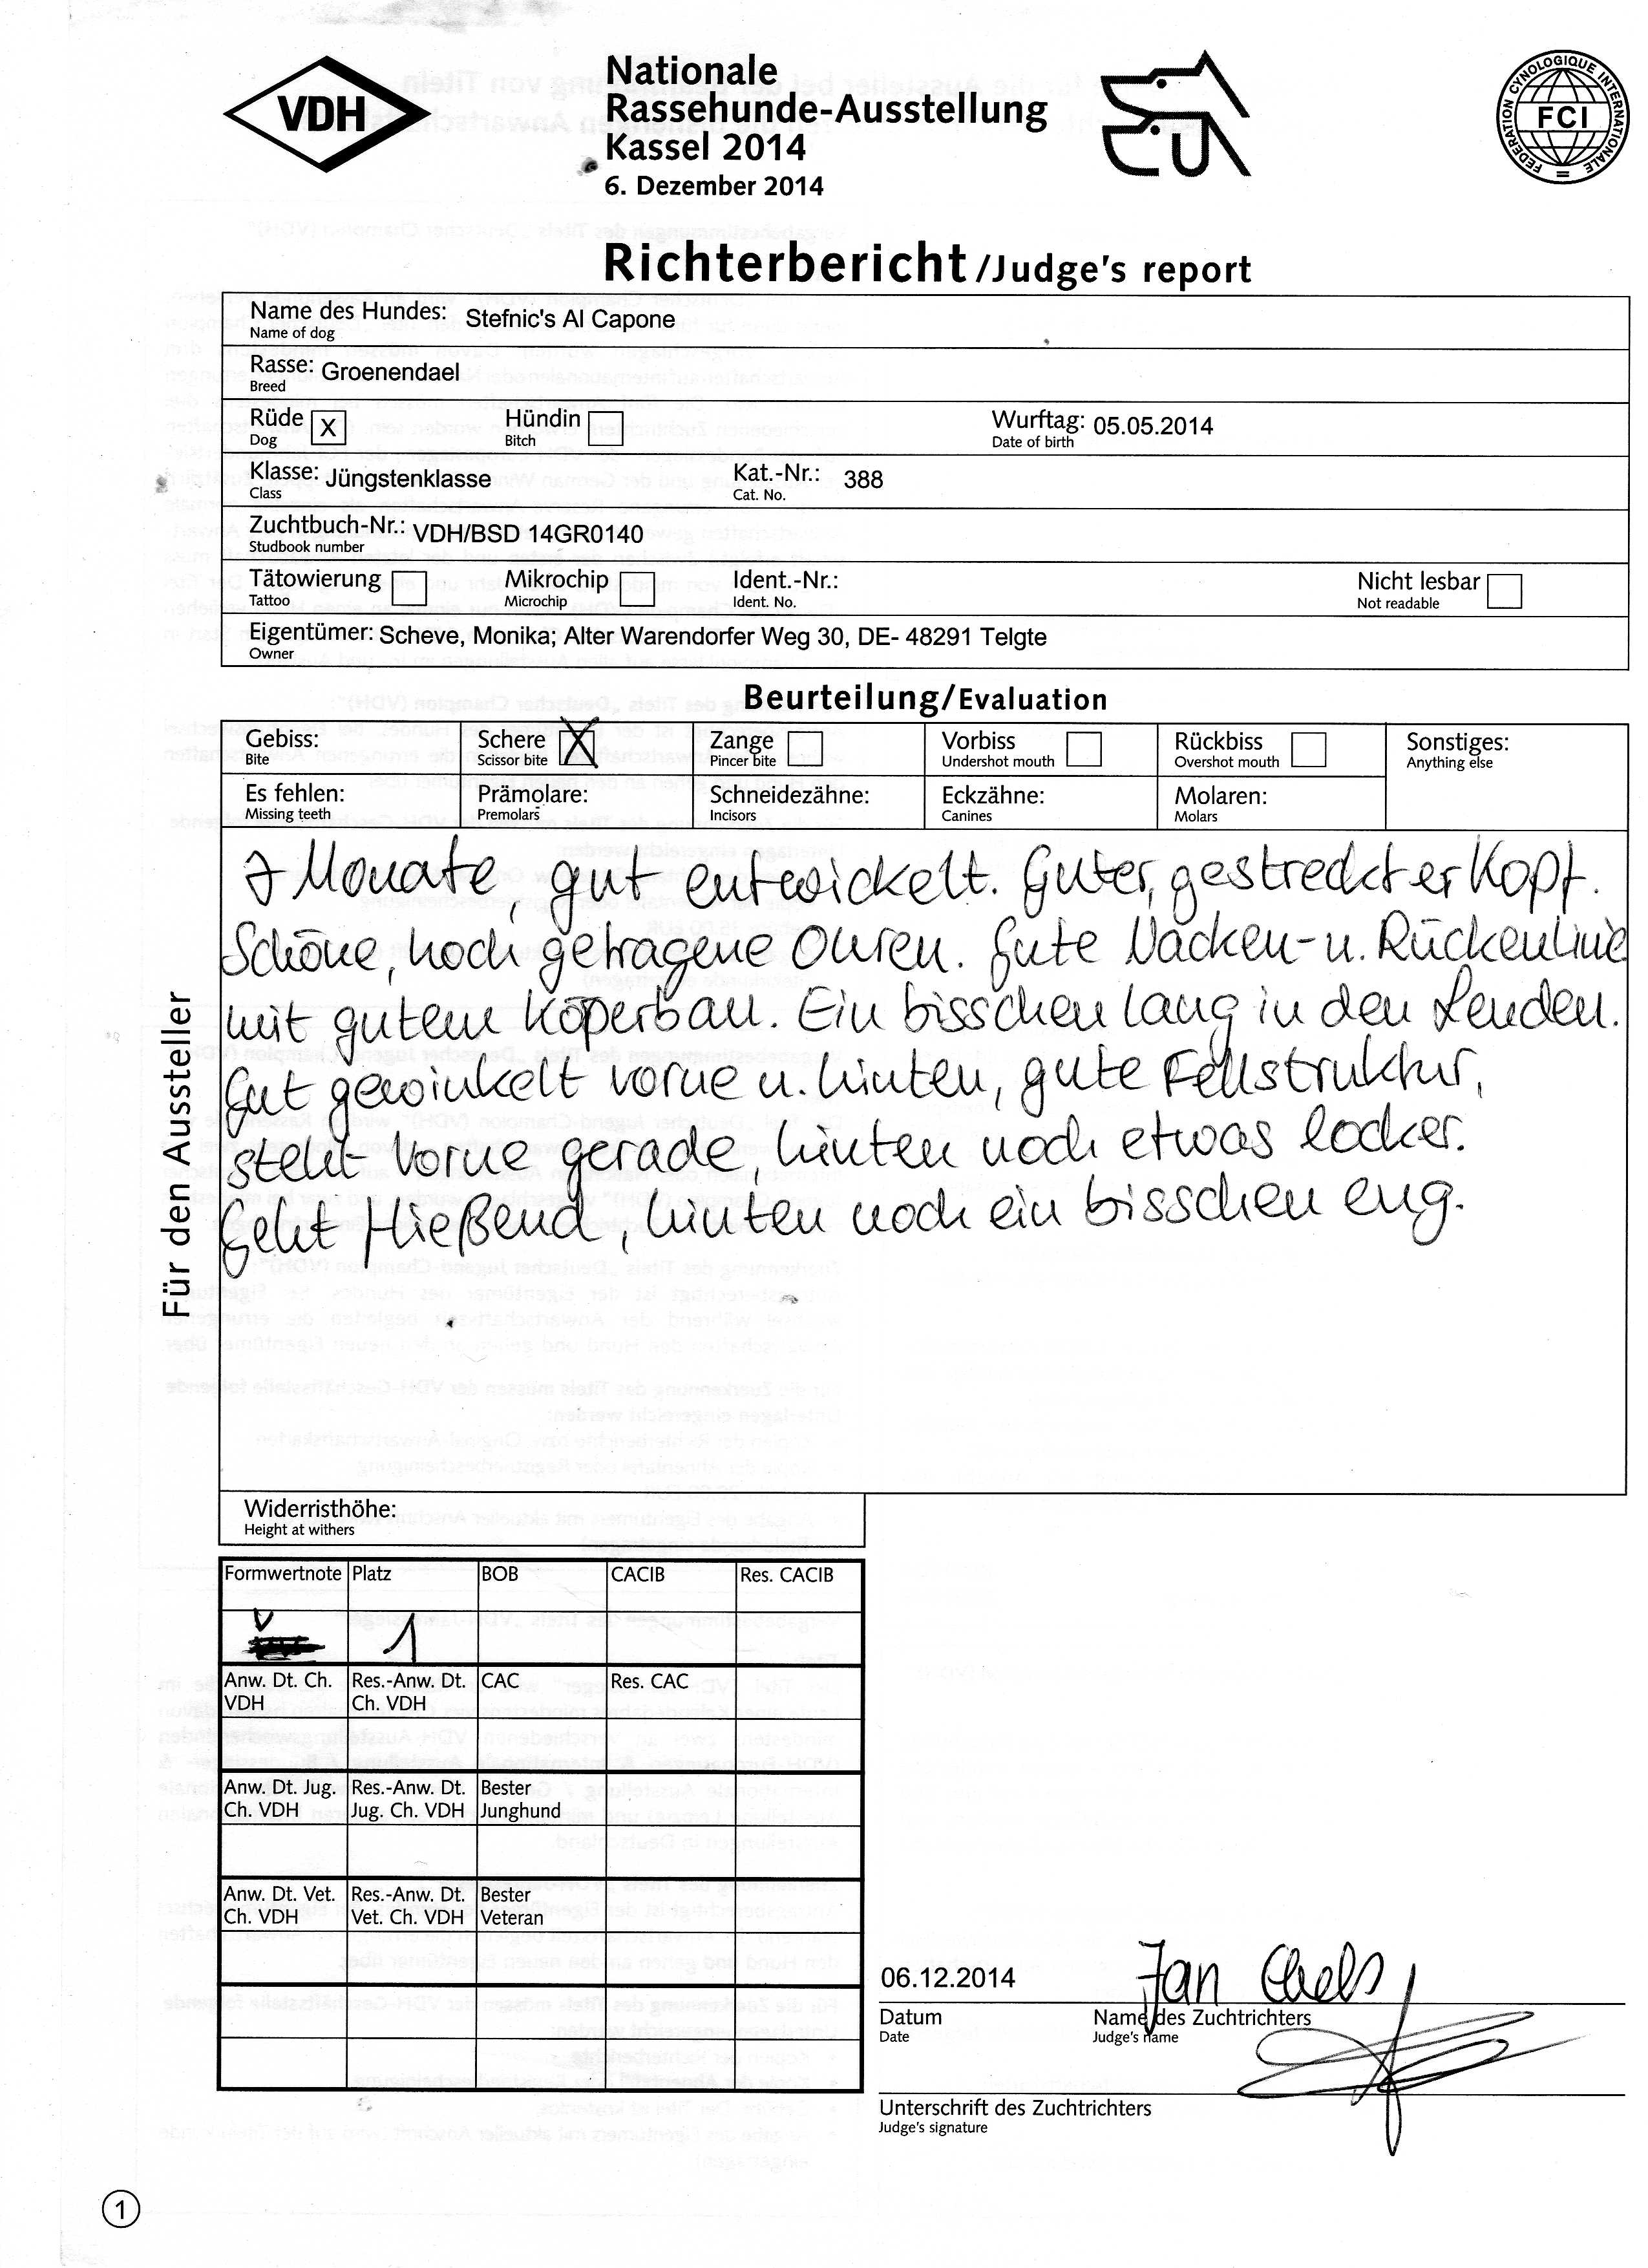 VDH
Nationale
Rassehunde-Ausstellung
Kassel 2014
6. Dezember 2014
FEDERATION CYNOLOGIQUE INTERNATIONALE
FCI
Richterbericht/Judge's report
Name des Hundes: Stefnic's Al Capone
Name of dog
Rasse: Groenendael
Breed
Rüde X Hündin Wurftag: 05.05.2014
Dog Bitch Date of birth
Klasse: Jüngstenklasse Kat.-Nr.: 388
Class Cat. No.
Zuchtbuch-Nr.: VDH/BSD 14GR0140
Studbook number
Tätowierung Mikrochip Ident.-Nr.: Nicht lesbar
Tattoo Microchip Ident. No. Not readable
Eigentümer: Scheve, Monika; Alter Warendorfer Weg 30, DE- 48291 Telgte
Owner
Beurteilung/Evaluation
Gebiss: Schere X Zange Vorbiss Rückbiss Sonstiges:
Bite Scissor bite Pincer bite Undershot mouth Overshot mouth Anything else
Es fehlen: Prämolare: Schneidezähne: Eckzähne: Molaren:
Missing teeth Premolars Incisors Canines Molars
Für den Aussteller
7 Monate, gut entwickelt. Guter, gestreckter Kopf.
Schöne, hoch getragene Ohren. Gute Nacken- u. Rückenlinie
mit gutem Köperbau. Ein bisschen lang in den Lenden.
Gut gewinkelt vorne u. hinten, gute Fellstruktur,
steht vorne gerade, hinten noch etwas locker.
Geht fließend, hinten noch ein bisschen eng.
Widerristhöhe:
Height at withers
Formwertnote Platz BOB CACIB Res. CACIB
V 1
Anw. Dt. Ch. Res.-Anw. Dt. CAC Res. CAC
VDH Ch. VDH
Anw. Dt. Jug. Res.-Anw. Dt. Bester
Ch. VDH Jug. Ch. VDH Junghund
Anw. Dt. Vet. Res.-Anw. Dt. Bester
Ch. VDH Vet. Ch. VDH Veteran
06.12.2014 Jan
Datum Name des Zuchtrichters
Date Judge's name
Unterschrift des Zuchtrichters
Judge's signature
1